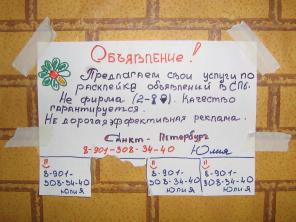 Объявление!
Предлагаем свои услуги по
расклейке объявлений в СПб.
Не фирма (2-8
Качество
гарантируется.
Не дорогая эффективная реклама.
Санкт - Петербург
8-901-308-34-40 Юлия
8-901-
308-34-40
Юлия
8-901-
308-34-40
Юлия
8-901-
308-34-40
Юлия